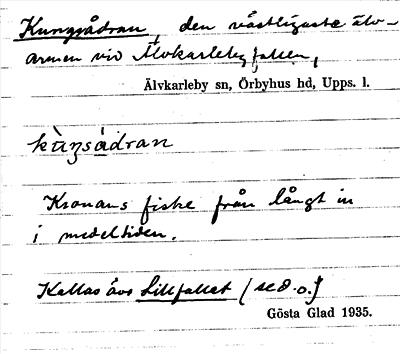 Kungsådran, den västligaste älv-
armen vid Älvkarlebyfallen,
Älvkarleby sn, Örbyhus hd, Upps. l.
Kronans fiske från långt in
i medeltiden.
Kallas äv. Lillfallet (se d. o.)
Gösta Glad 1935.